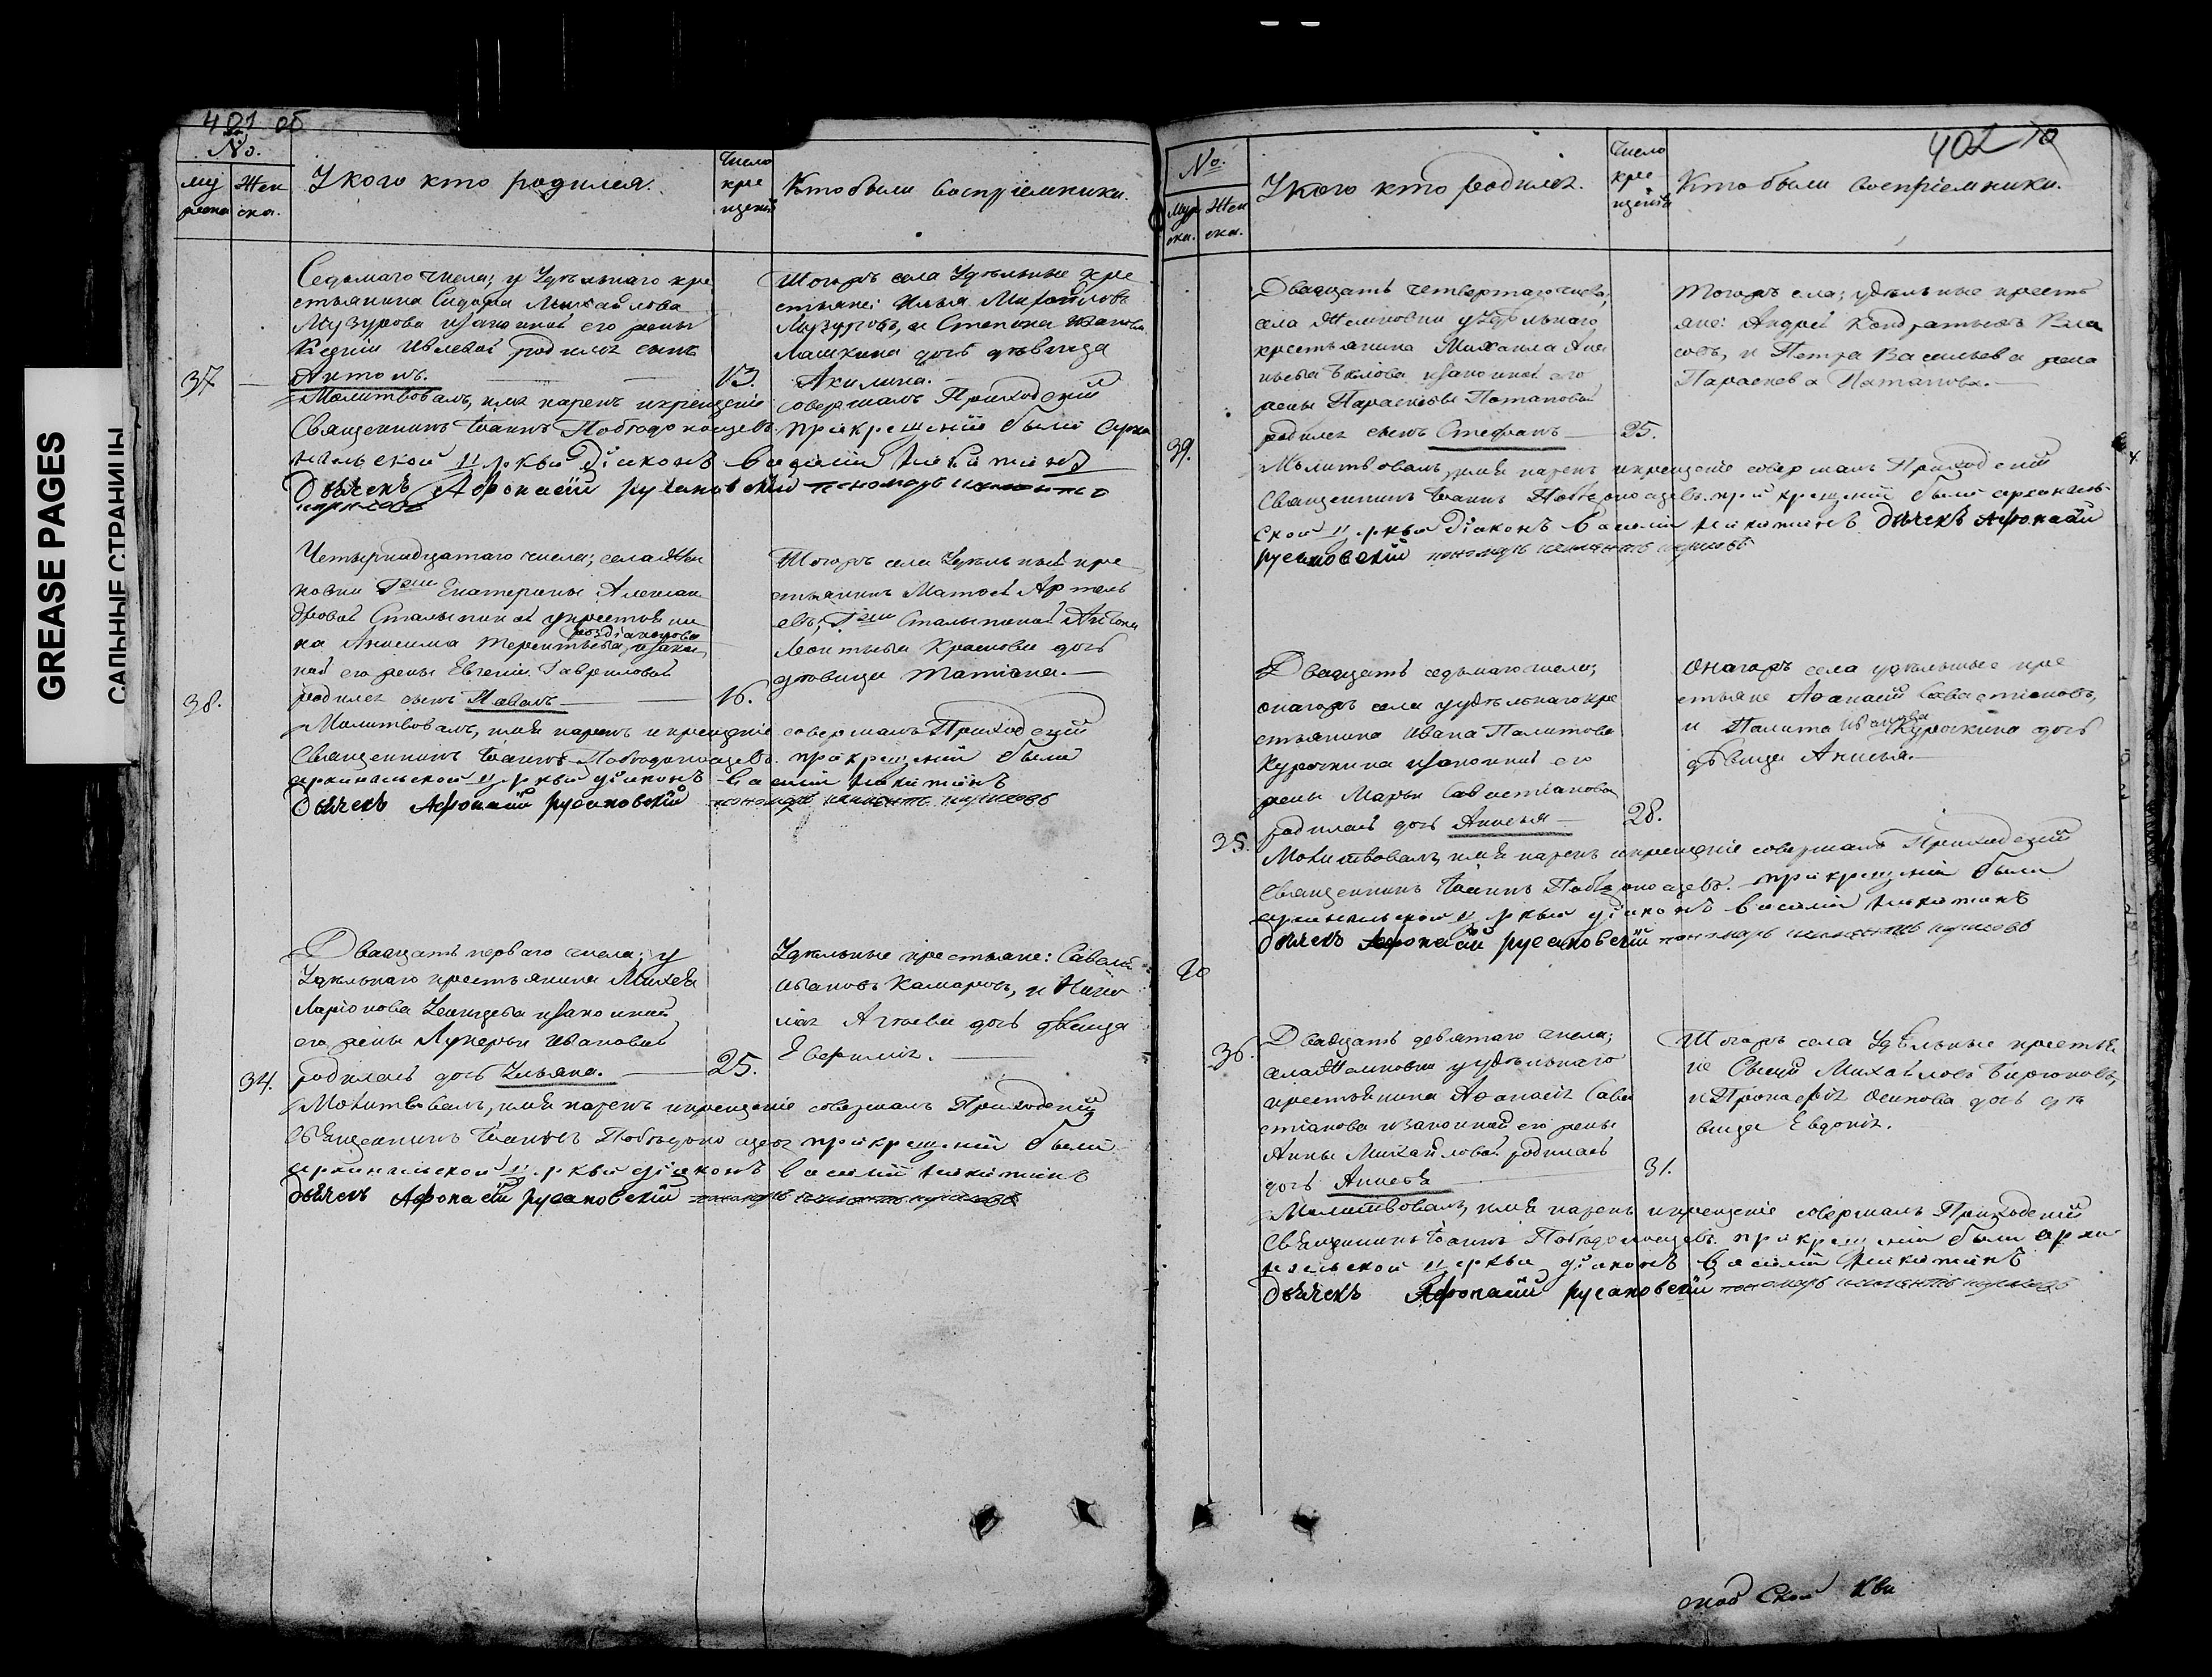 GREASE PAGES
САЛЬНЫЕ СТРАНИЦЫ
401 об
No.
Муж
Жен
ска.
У кого кто родился.
Число
кре
щенія
Кто были воспріемники.
Седьмаго числа; у Удѣльнаго кре
стьянина Сидора Михайлова
Музурова и законной его жены
Ксеніи Ивлевой родился сынъ
37
Антонъ.
13.
Тогожъ села Удѣльные кре
стьяне: Илья Михайловъ
Музуровъ, и Степана Иванова
Лашкина дочь дѣвица
Акилина.
Молитвовалъ, имя нарекъ и крещеніе совершалъ Приходскій
Священникъ Іоаннъ Побѣдоносцевъ. при крещеніи были Архан
гельской церкви Діаконъ Василій Никитинъ
Дьячекъ Афонасій Русановскій пономарь
Четырнадцатаго числа; села
Гжи Екатерины Алексан
дровой Столыпиной у крестьяни
на Анисима Терентьева и закон
ной его жены Евгеніи Гавриловой
38.
родился сынъ Павелъ
16.
Тогожъ села Удѣльный кре
стьянинъ Матвей Артемь
евъ; Гжи Столыпиной
Леонтьева Краснова дочь
девица Татіана.
Молитвовалъ, имя нарекъ и крещеніе совершалъ Приходскій
Священникъ Іоаннъ Побѣдоносцевъ. при крещеніи были
архангельской церкви діаконъ Василій Никитинъ
Дьячекъ Афонасій Русановскій пономарь
Двадцать перваго числа; у
Удѣльнаго крестьянина Михея
Ларіонова и законной
его жены Лукерьи Ивановой
34.
родилась дочь Ульяна.
25.
Удѣльные крестьяне: Савелій
Ивановъ Камаровъ, и Нико
лая дочь дѣвица
Евфимія.
Молитвовалъ, имя нарекъ и крещеніе совершалъ Приходскій
Священникъ Іоаннъ Побѣдоносцевъ при крещеніи были
архангельской церкви діаконъ Василій Никитинъ
Дьячекъ Афонасій Русановскій пономарь
402
No.
Муж
ска.
Жен
ска.
У кого кто родился.
Число
кре
щенія
Кто были воспріемники.
Двадцать четвертаго числа,
села у Удѣльнаго
крестьянина Михаила
и законной его
жены Параскевы Потаповой
39.
родился сынъ Стефанъ
25.
Тогожъ села; удѣльные кресть
яне: Андрей Кондратьевъ Вла
совъ, и Петра Васильева жена
Параскева Потапова.
Молитвовалъ, имя нарекъ и крещеніе совершалъ Приходскій
Священникъ Іоаннъ Побѣдоносцевъ. при крещеніи были архангель
ской церкви діаконъ Василій Никитинъ Дьячекъ Афонасій
Русановскій пономарь
Двадцать седьмаго числа;
онагожъ села у удѣльнаго кре
стьянина Ивана Политова
Курочкина и законной его
жены Марьи Савастіановой
35.
родилась дочь Анисья
28.
Онагожъ села удѣльные кре
стьяне Афанасій Савастіановъ,
и Полита Иванова Курочкина дочь
дѣвица Анисья.
Молитвовалъ, имя нарекъ и крещеніе совершалъ Приходскій
Священникъ Іоаннъ Побѣдоносцевъ. при крещеніи были
архангельской церкви діаконъ Василій Никитинъ
Дьячекъ Афонасій Русановскій пономарь
40
Двадцать девятаго числа;
села у удѣльнаго
крестьянина Афанасія Сава
стіанова и законной его жены
Анны Михайловой родилась
36.
дочь Анисья
31.
Тогожъ села Удѣльные крестья
не Михайловъ Бирюковъ,
и Прокофія Осипова дочь дѣ
вица Евдокія.
Молитвовалъ, имя нарекъ и крещеніе совершалъ Приходскій
Священникъ Іоаннъ Побѣдоносцевъ. при крещеніи были архан
гельской церкви діаконъ Василій Никитинъ
Дьячекъ Афонасій Русановскій пономарь